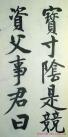 寶寸陰是競
資父事君曰